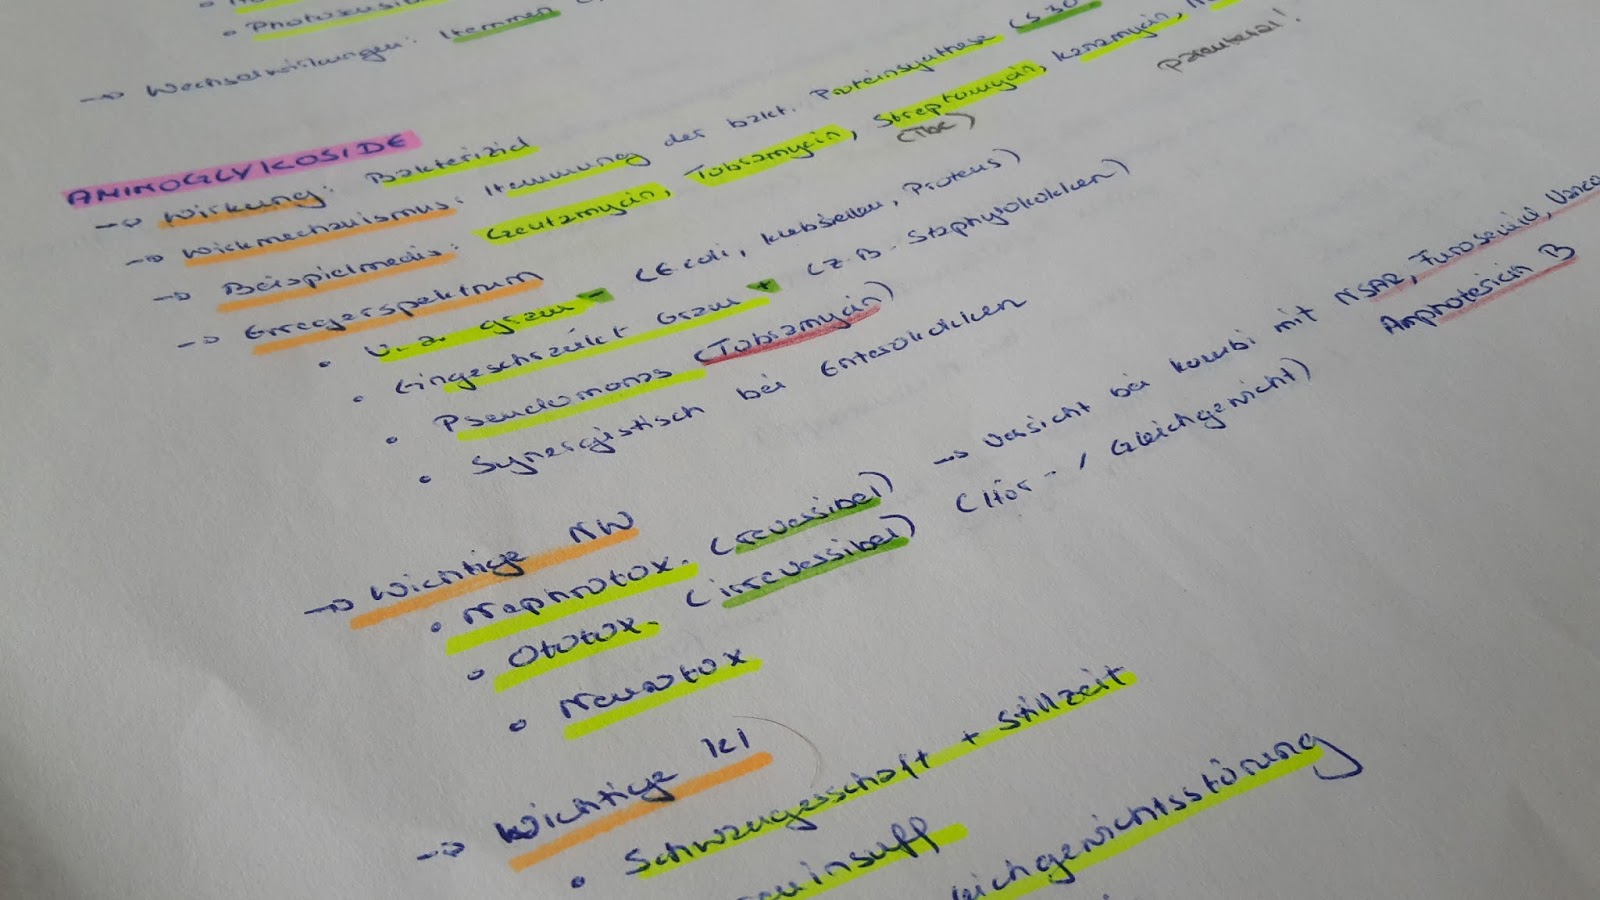 • Photo
→ Wechselwirkungen: Hemmen
AMINOGLYKOSIDE
→ Wirkung: Bakterizid
→ Wirkmechanismus: Hemmung der bakt. Proteinsynthese (S30
→ Beispielmedis: Gentamycin, Tobramycin, Streptomycin, Kanamycin,
(Tbc)
parenteral!
→ Erregerspektrum
• v.a. gram - (E.coli, Klebsiellen, Proteus)
• Eingeschränkt Gram + (z.B. Staphylokokken)
• Pseudomonas (Tobramycin)
• Synergistisch bei Enterokokken
→ Wichtige NW
• Nephrotox. (reversibel) → Vorsicht bei Kombi mit NSAR, Furosemid, Vanco
Amphotericin B
• Ototox. (irreversibel) (Hör- / Gleichgewicht)
• Neurotox
→ Wichtige KI
• Schwangerschaft + Stillzeit
insuff
eichgewichtsstörung